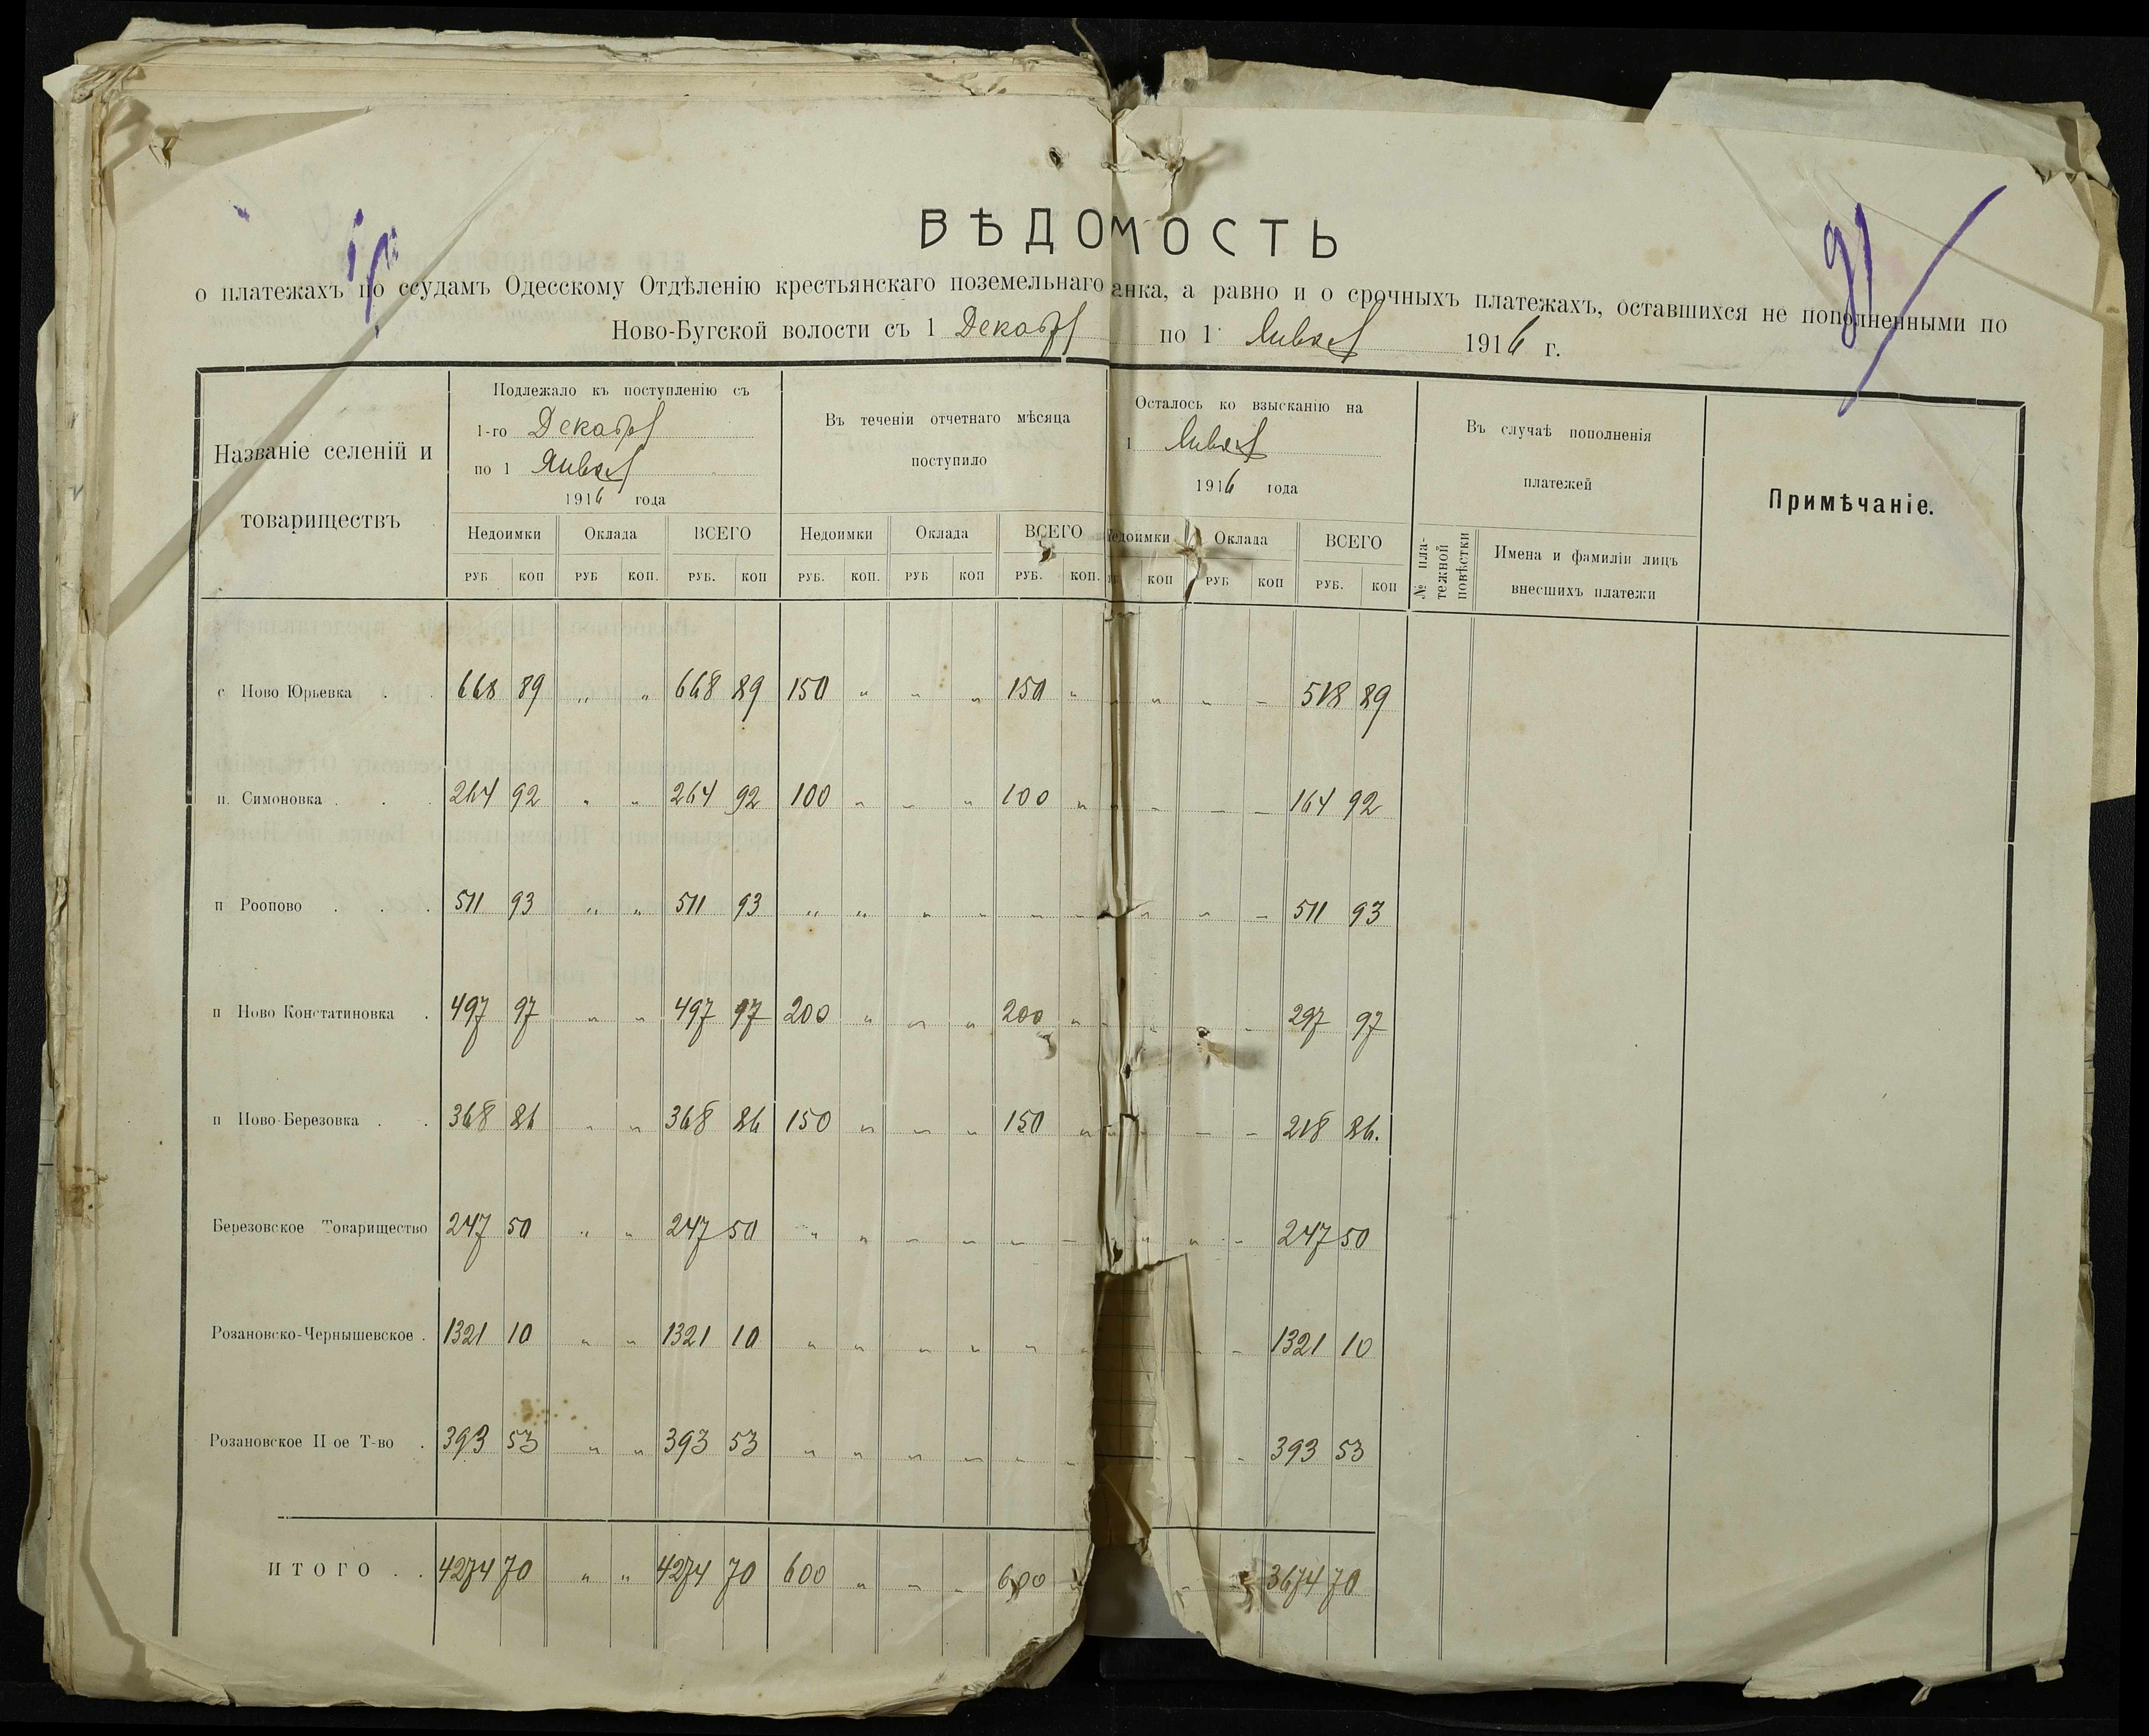 91
ВѢДОМОСТЬ
о платежахъ по ссудамъ Одесскому Отдѣленію крестьянскаго поземельнаго анка, а равно и о срочныхъ платежахъ, оставшихся не пополненными по
Ново-Бугской волости съ 1 Декабря по 1 Января 1916 г.
Названіе селеній и товариществъ
Подлежало къ поступленію съ
1-го Декабря
по 1 Января
1916 года
Въ теченіи отчетнаго мѣсяца
поступило
Осталось ко взысканію на
1 Января
1916 года
Въ случаѣ пополненія
платежей
Примѣчаніе.
Недоимки Оклада ВСЕГО Недоимки Оклада ВСЕГО едоимки Оклада ВСЕГО
№ пла-
тежной
повѣстки
Имена и фамиліи лицъ
внесшихъ платежи
РУБ КОП РУБ КОП. РУБ. КОП РУБ. КОП. РУБ КОП РУБ. КОП. КОП РУБ КОП РУБ. КОП
с Ново Юрьевка . . 668 89 „ „ 668 89 150 „ „ „ 150 „ „ „ „ – 518 89
п. Симоновка . . . 264 92 „ „ 264 92 100 „ „ „ 100 „ „ – – – 164 92
п Роопово . . . 511 93 „ „ 511 93 „ „ „ „ „ „ „ „ – 511 93
п Ново Констатиновка . 497 97 „ „ 497 97 200 „ „ „ 200 „ – „ – 297 97
п Ново-Березовка . . 368 86 „ „ 368 86 150 „ „ „ 150 „ „ – – 218 86.
Березовское Товарищество 247 50 „ „ 247 50 „ „ – – – – „ „ – 247 50
Розановско-Чернышевское . 1321 10 „ „ 1321 10 „ „ „ „ „ „ – 1321 10
Розановское II ое Т-во . 393 53 „ „ 393 53 „ „ „ „ „ „ – – 393 53
ИТОГО . . 4274 70 „ „ 4274 70 600 „ „ – 600 „ – 3674 70